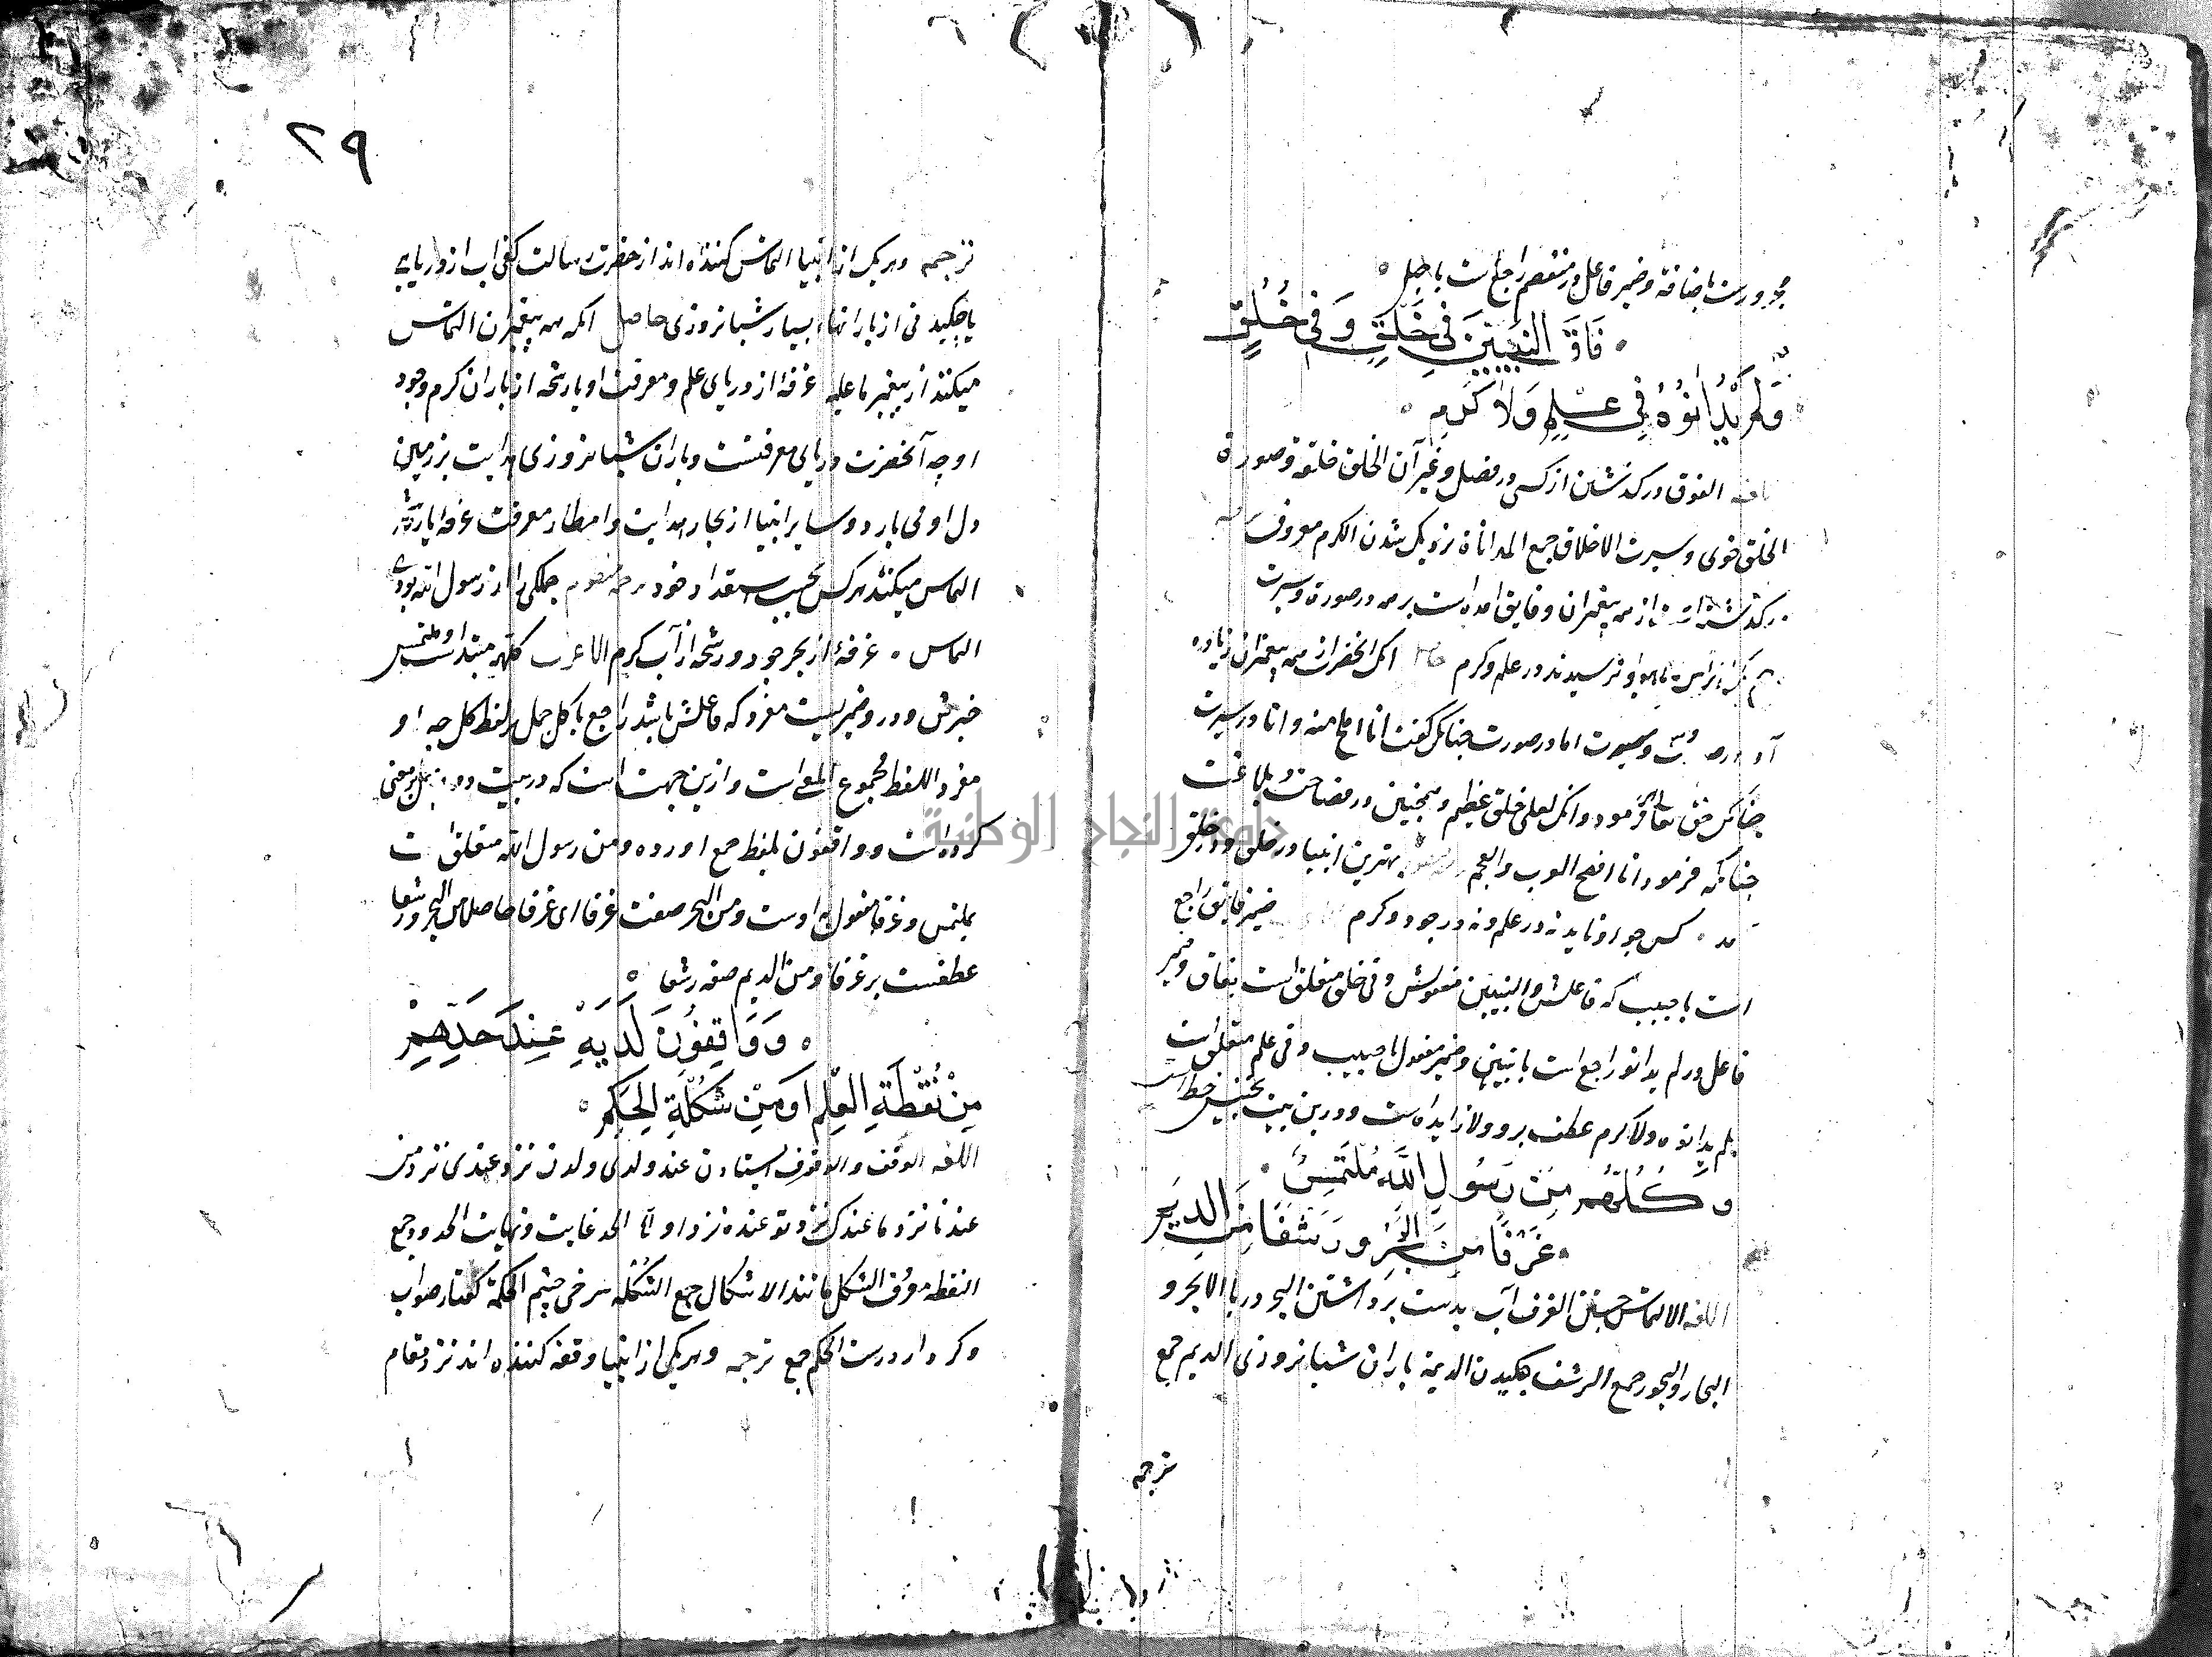 مجرورست باضافة و ضمیر فاعل در منفصم راجع است با حبل
فَاقَ النَّبِيِّينَ فِي خَلْقٍ وَفِي خُلُقٍ
وَلَمْ يُدَانُوهُ فِي عِلْمٍ وَلَا كَرَمِ
الفوق در گذشتن از کسی در فضل و غیر آن الخلق خلقة و صورة
الخلق خوی و سیرت الاخلاق جمع المداناة نزدیک شدن الکرم معروف
از همه پیغمبران و فایق آمده است بر همه در صورة و سیرت
نرسیدند در علم و کرم انکه انحضرت از همه پیغمبران زیاده
و سیرت اما در صورت چنانکه گفت انا املح منه و اما در سیرت
چنانکه حق تعالی فرمود وانک لعلی خلق عظیم و همچنین در فصاحت و بلاغت
چنانکه فرمود انا افصح العرب والعجم بهترین انبیا در خلق و در خلق
کس چو او ناید نه در علم و نه در جود و کرم ضمیر فایق راجع
است با حبیب که فاعلش والنبیین مفعولش و فی خلق متعلق است بفاق و ضمیر
فاعل در لم یدانو راجع است با نبیین و ضمیر مفعول با حبیب و فی علم متعلق است
بلم یدانوه ولا کرم عطف برو ولا زایده است و درین بیت تجنیس خط است
وَكُلُّهُمْ مِنْ رَسُولِ اللَّهِ مُلْتَمِسٌ
غَرْفًا مِنَ الْبَحْرِ وَرَشْفًا مِنَ الدِّيَمِ
اللغه الالتماس جستن الغرف آب بدست برداشتن البحر دریا الابحر و
البحار والبحور جمع الرشف مکیدن الدیمة باران شبانروزی الدیم جمع
ترجمه
۲۹
ترجمه و هریک از انبیا التماس کننده اند از حضرت رسالت کفی اب از دریای
یا چکید فی از بارانهاء بسیار شبانروزی حاصل انکه همه پیغمبران التماس
میکنند از پیغمبر ما علیه غرفهٔ از دریای علم و معرفت او یا رشحه از باران کرم و جود
او چه آنحضرت دریای معرفتست و باران شبانروزی هدایت بر زمین
دل او می بارد و سایر انبیا از بحار هدایت و امطار معرفت غرفه یا رشحه
التماس میکنند هر کس بحسب استعداد خود جملکی را از رسول الله بودی
التماس غرفهٔ از بحر جود و رشحه از آب کرم الاعراب کلهم مبتداست و ملتمس
خبرش و در و ضمیریست مفرد که فاعلش باشد راجع با کل حمل بر لفظ کل چه او
مفرد اللفظ مجموع المعنی است و ازین جهت است که در بیت دوم حمل بر معنی
کرده است و واقفون بلفظ جمع اورده و من رسول الله متعلق است
بملتمس و غرفا مفعول به اوست و من البحر صفت غرفا ای غرفا حاصلا من البحر و رشفا
عطفست بر غرفا و من الدیم صفه رشفا
وَوَاقِفُونَ لَدَيْهِ عِنْدَ حَدِّهِمْ
مِنْ نُقْطَةِ الْعِلْمِ أَوْ مِنْ شَكْلَةِ الْحِكَمِ
اللغه الوقف والوقوف ایستادن عند ولدی ولدن نزد عندی نزد من
عندنا نزد ما عندک نزد تو عنده نزد او الحد غایت و نهایت الحدود جمع
النقطه معروف الشکل مانند الاشکال جمع الشکله سرخی چشم الحکمة گفتار صواب
و کردار درست الحکم جمع ترجمه و هریکی از انبیا وقفه کننده اند نزد مقام
جامعة النجاح الوطنية